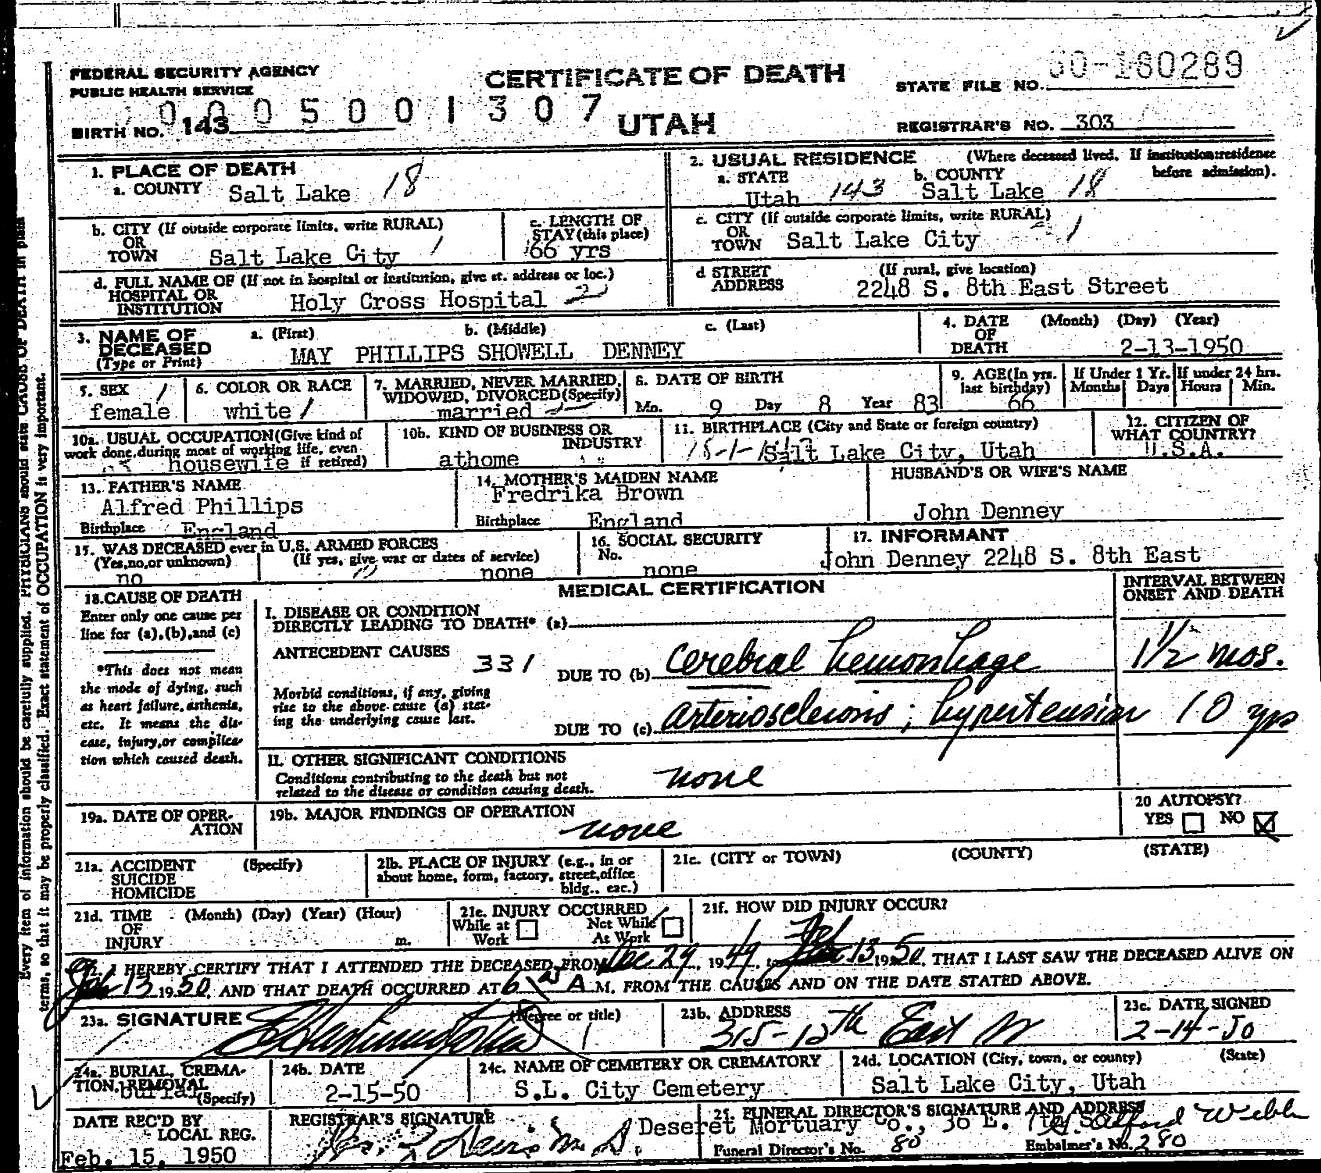 FEDERAL SECURITY AGENCY
PUBLIC HEALTH SERVICE
CERTIFICATE OF DEATH
STATE FILE NO. 50-180289
0005001307
BIRTH NO. 143
UTAH
REGISTRAR'S NO. 303
1. PLACE OF DEATH
a. COUNTY Salt Lake 18
2. USUAL RESIDENCE (Where deceased lived. If institution:residence before admission).
a. STATE Utah 143 b. COUNTY Salt Lake 18
b. CITY (If outside corporate limits, write RURAL)
OR
TOWN Salt Lake City 1
c. LENGTH OF
STAY (this place)
66 yrs
c. CITY (If outside corporate limits, write RURAL)
OR
TOWN Salt Lake City 1
d. FULL NAME OF (If not in hospital or institution, give st. address or loc.)
HOSPITAL OR
INSTITUTION Holy Cross Hospital
d STREET (If rural, give location)
ADDRESS 2248 S. 8th East Street
3. NAME OF
DECEASED
(Type or Print)
a. (First) b. (Middle) c. (Last)
MAY PHILLIPS SHOWELL DENNEY
4. DATE (Month) (Day) (Year)
OF
DEATH 2-13-1950
5. SEX 1
female
6. COLOR OR RACE
white 1
7. MARRIED, NEVER MARRIED,
WIDOWED, DIVORCED (Specify)
married
8. DATE OF BIRTH
Mo. 9 Day 8 Year 83
9. AGE (In yrs.
last birthday)
66
If Under 1 Yr.
Months Days
If under 24 hrs.
Hours Min.
10a. USUAL OCCUPATION (Give kind of
work done, during most of working life, even
housewife if retired)
10b. KIND OF BUSINESS OR
INDUSTRY
athome
11. BIRTHPLACE (City and State or foreign country)
Salt Lake City, Utah
12. CITIZEN OF
WHAT COUNTRY?
U.S.A.
13. FATHER'S NAME
Alfred Phillips
Birthplace England
14. MOTHER'S MAIDEN NAME
Fredrika Brown
Birthplace England
HUSBAND'S OR WIFE'S NAME
John Denney
15. WAS DECEASED ever in U.S. ARMED FORCES
(Yes,no,or unknown) (If yes, give war or dates of service)
no none
16. SOCIAL SECURITY
No. none
17. INFORMANT
John Denney 2248 S. 8th East
18. CAUSE OF DEATH
Enter only one cause per
line for (a),(b),and (c)
*This does not mean
the mode of dying, such
as heart failure, asthenia,
etc. It means the dis-
ease, injury, or complica-
tion which caused death.
MEDICAL CERTIFICATION
INTERVAL BETWEEN
ONSET AND DEATH
I. DISEASE OR CONDITION
DIRECTLY LEADING TO DEATH* (a)
ANTECEDENT CAUSES 331
DUE TO (b) Cerebral hemorrhage 1 1/2 mos.
Morbid conditions, if any, giving
rise to the above cause (a) stat-
ing the underlying cause last.
DUE TO (c) arteriosclerosis; hypertension 10 yrs
II. OTHER SIGNIFICANT CONDITIONS
Conditions contributing to the death but not
related to the disease or condition causing death.
none
19a. DATE OF OPER-
ATION
19b. MAJOR FINDINGS OF OPERATION
none
20 AUTOPSY?
YES NO
21a. ACCIDENT (Specify)
SUICIDE
HOMICIDE
21b. PLACE OF INJURY (e.g., in or
about home, form, factory, street, office
bldg., etc.)
21c. (CITY or TOWN) (COUNTY) (STATE)
21d. TIME (Month) (Day) (Year) (Hour)
OF
INJURY m.
21e. INJURY OCCURRED
While at Work Not While At Work
21f. HOW DID INJURY OCCUR?
I HEREBY CERTIFY THAT I ATTENDED THE DECEASED FROM Dec 29, 1949, to Feb 13 1950, THAT I LAST SAW THE DECEASED ALIVE ON
Feb 13 1950, AND THAT DEATH OCCURRED AT A.M. FROM THE CAUSES AND ON THE DATE STATED ABOVE.
23a. SIGNATURE (Degree or title)
23b. ADDRESS
315-12th East
23c. DATE SIGNED
2-14-50
24a. BURIAL, CREMA-
TION, REMOVAL
burial (Specify)
24b. DATE
2-15-50
24c. NAME OF CEMETERY OR CREMATORY
S.L. City Cemetery
24d. LOCATION (City, town, or county) (State)
Salt Lake City, Utah
DATE REC'D BY
LOCAL REG.
Feb. 15, 1950
REGISTRAR'S SIGNATURE
25. FUNERAL DIRECTOR'S SIGNATURE AND ADDRESS
Deseret Mortuary Co., 36 E.
Funeral Director's No. 80 Embalmer's No. 280
Every item of information should be carefully supplied. PHYSICIANS should state CAUSE OF DEATH in plain
terms, so that it may be properly classified. Exact statement of OCCUPATION is very important.